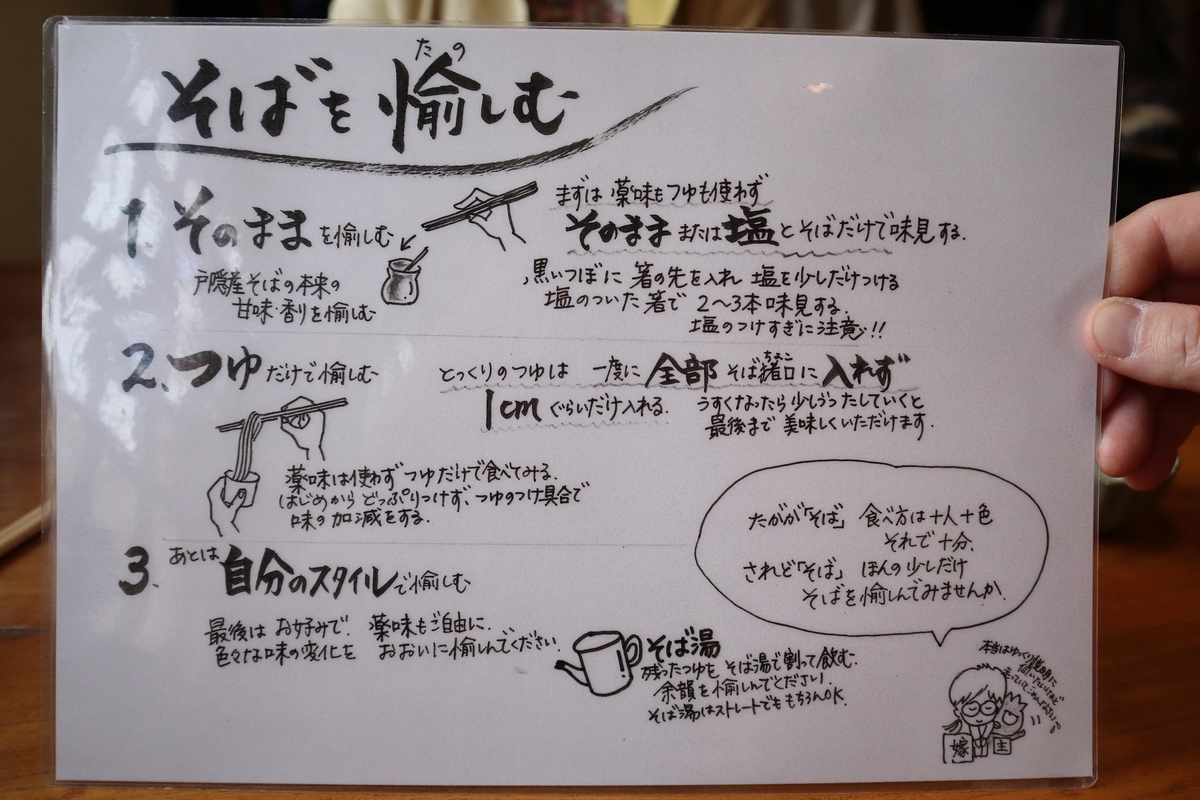 そばを愉しむ
たの
1. そのままを愉しむ
戸隠産そばの本来の
甘味・香りを愉しむ
まずは薬味もつゆも使わず
そのまま または 塩 とそばだけで味見する.
黒いつぼに 箸の先を入れ 塩を少しだけつける
塩のついた箸で 2～3本味見する.
塩のつけすぎに注意!!
2. つゆだけで愉しむ
とっくりのつゆは 一度に 全部 そば猪口に 入れず
ちょこ
1cm ぐらいだけ入れる. うすくなったら少しうつ たしていくと
最後まで 美味しくいただけます.
薬味は使わず つゆだけで食べてみる.
はじめから どっぷりつけず、つゆのつけ具合で
味の加減をする.
たがが「そば」 食べ方は十人十色
それで十分.
されど「そば」 ほんの少しだけ
そばを愉しんでみませんか.
3. あとは 自分のスタイルで愉しむ
最後は お好みで. 薬味もご自由に.
色々な味の変化を おおいに愉しんでください.
そば湯
残ったつゆを そば湯で割って飲む.
余韻を愉しんでください.
そば湯はストレートでももちろんOK.
本当はゆっくり説明に
嫁
主